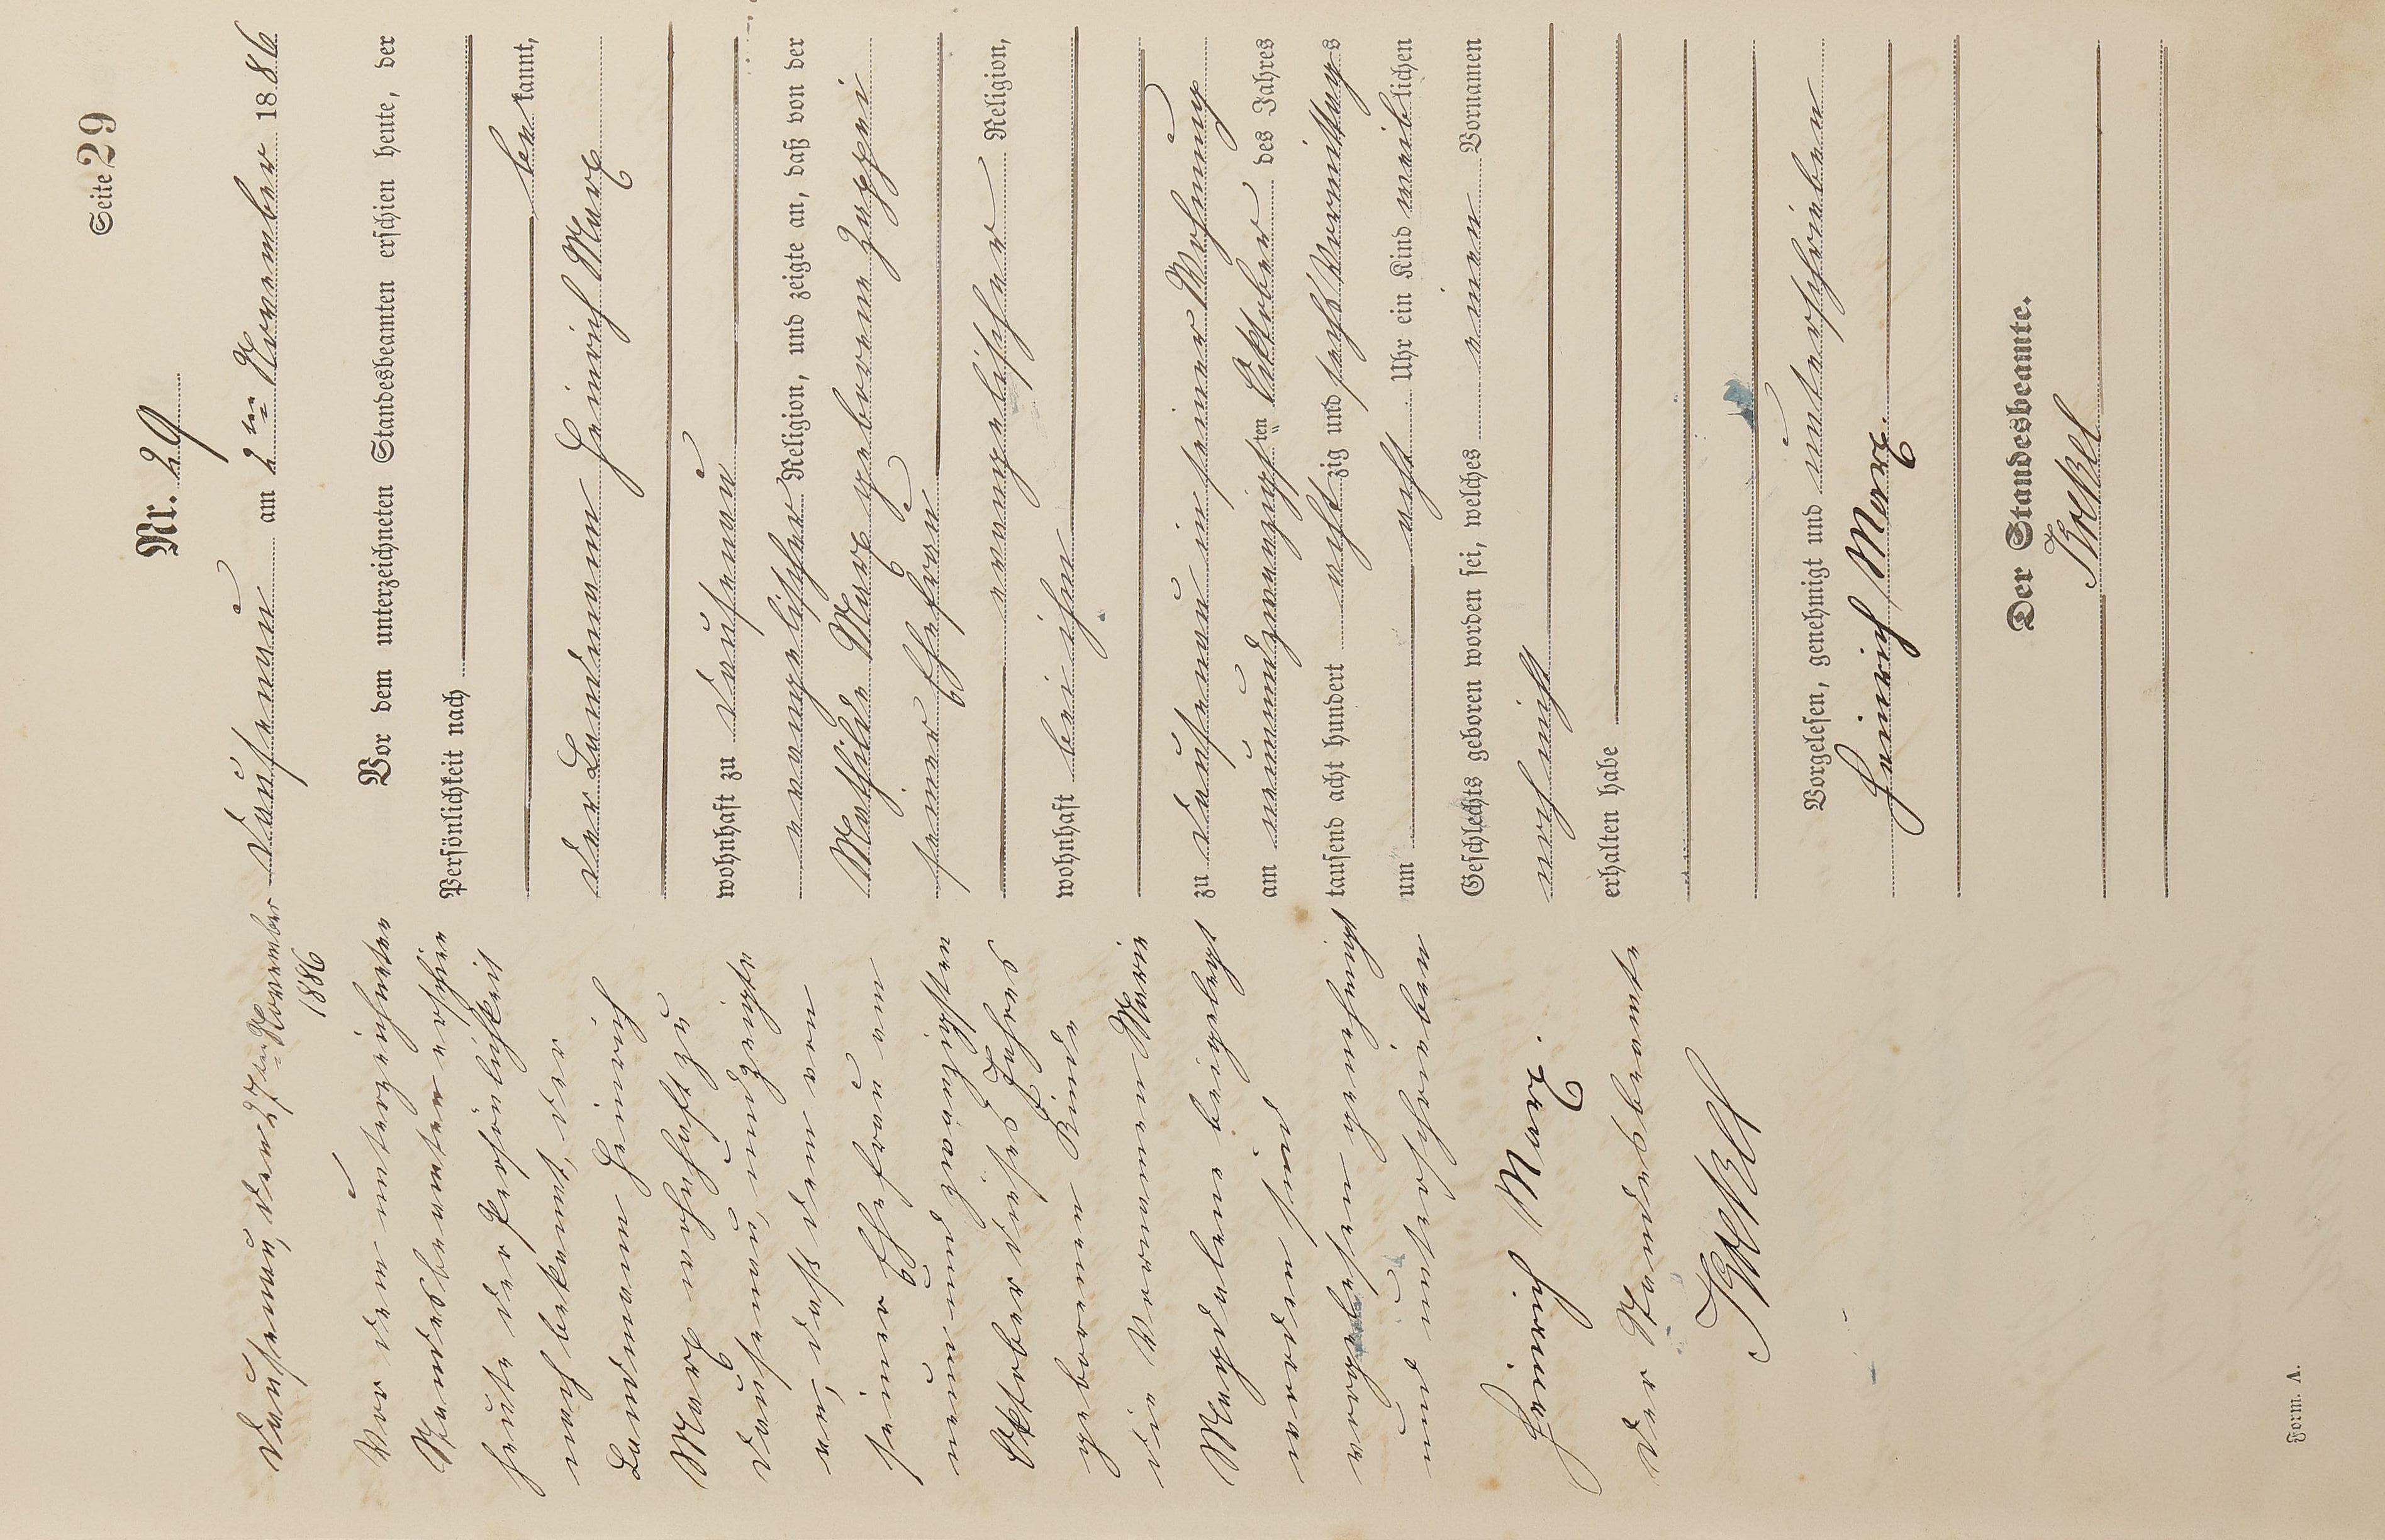 Seite 29
Nr. 29
Dausenau am 2ten November 1886
Vor dem unterzeichneten Standesbeamten erschien heute, der
Persönlichkeit nach
bekannt,
der Landmann Heinrich Marx
wohnhaft zu Dausenau
evangelischer Religion, und zeigte an, daß von der
Mathilde Marx geborene
seiner Ehefrau
evangelischer Religion,
wohnhaft bei ihm
zu Dausenau in seiner Wohnung
am neunundzwanzigsten Oktober des Jahres
tausend acht hundert achtzig und sechs Vormittags
um acht Uhr ein Kind weiblichen
Geschlechts geboren worden sei, welches einen Vornamen
noch nicht
erhalten habe
Vorgelesen, genehmigt und unterschrieben
Heinrich Marx.
Der Standesbeamte.
Dausenau, den 27ten November
1886
Vor dem unterzeichneten
Standesbeamten erschien
heute der Persönlichkeit
nach bekannt, der
Landmann Heinrich
Marx wohnhaft zu
Dausenau, und zeigte
an, daß dem von
seiner Ehefrau am
neunundzwanzigsten
Oktober dieses Jahres
geborenen Kinde
die Vornamen Marie
Magdalene beigelegt
worden sind
vorgelesen genehmigt
und unterschrieben
Heinrich Marx.
Der Standesbeamte
Form. A.